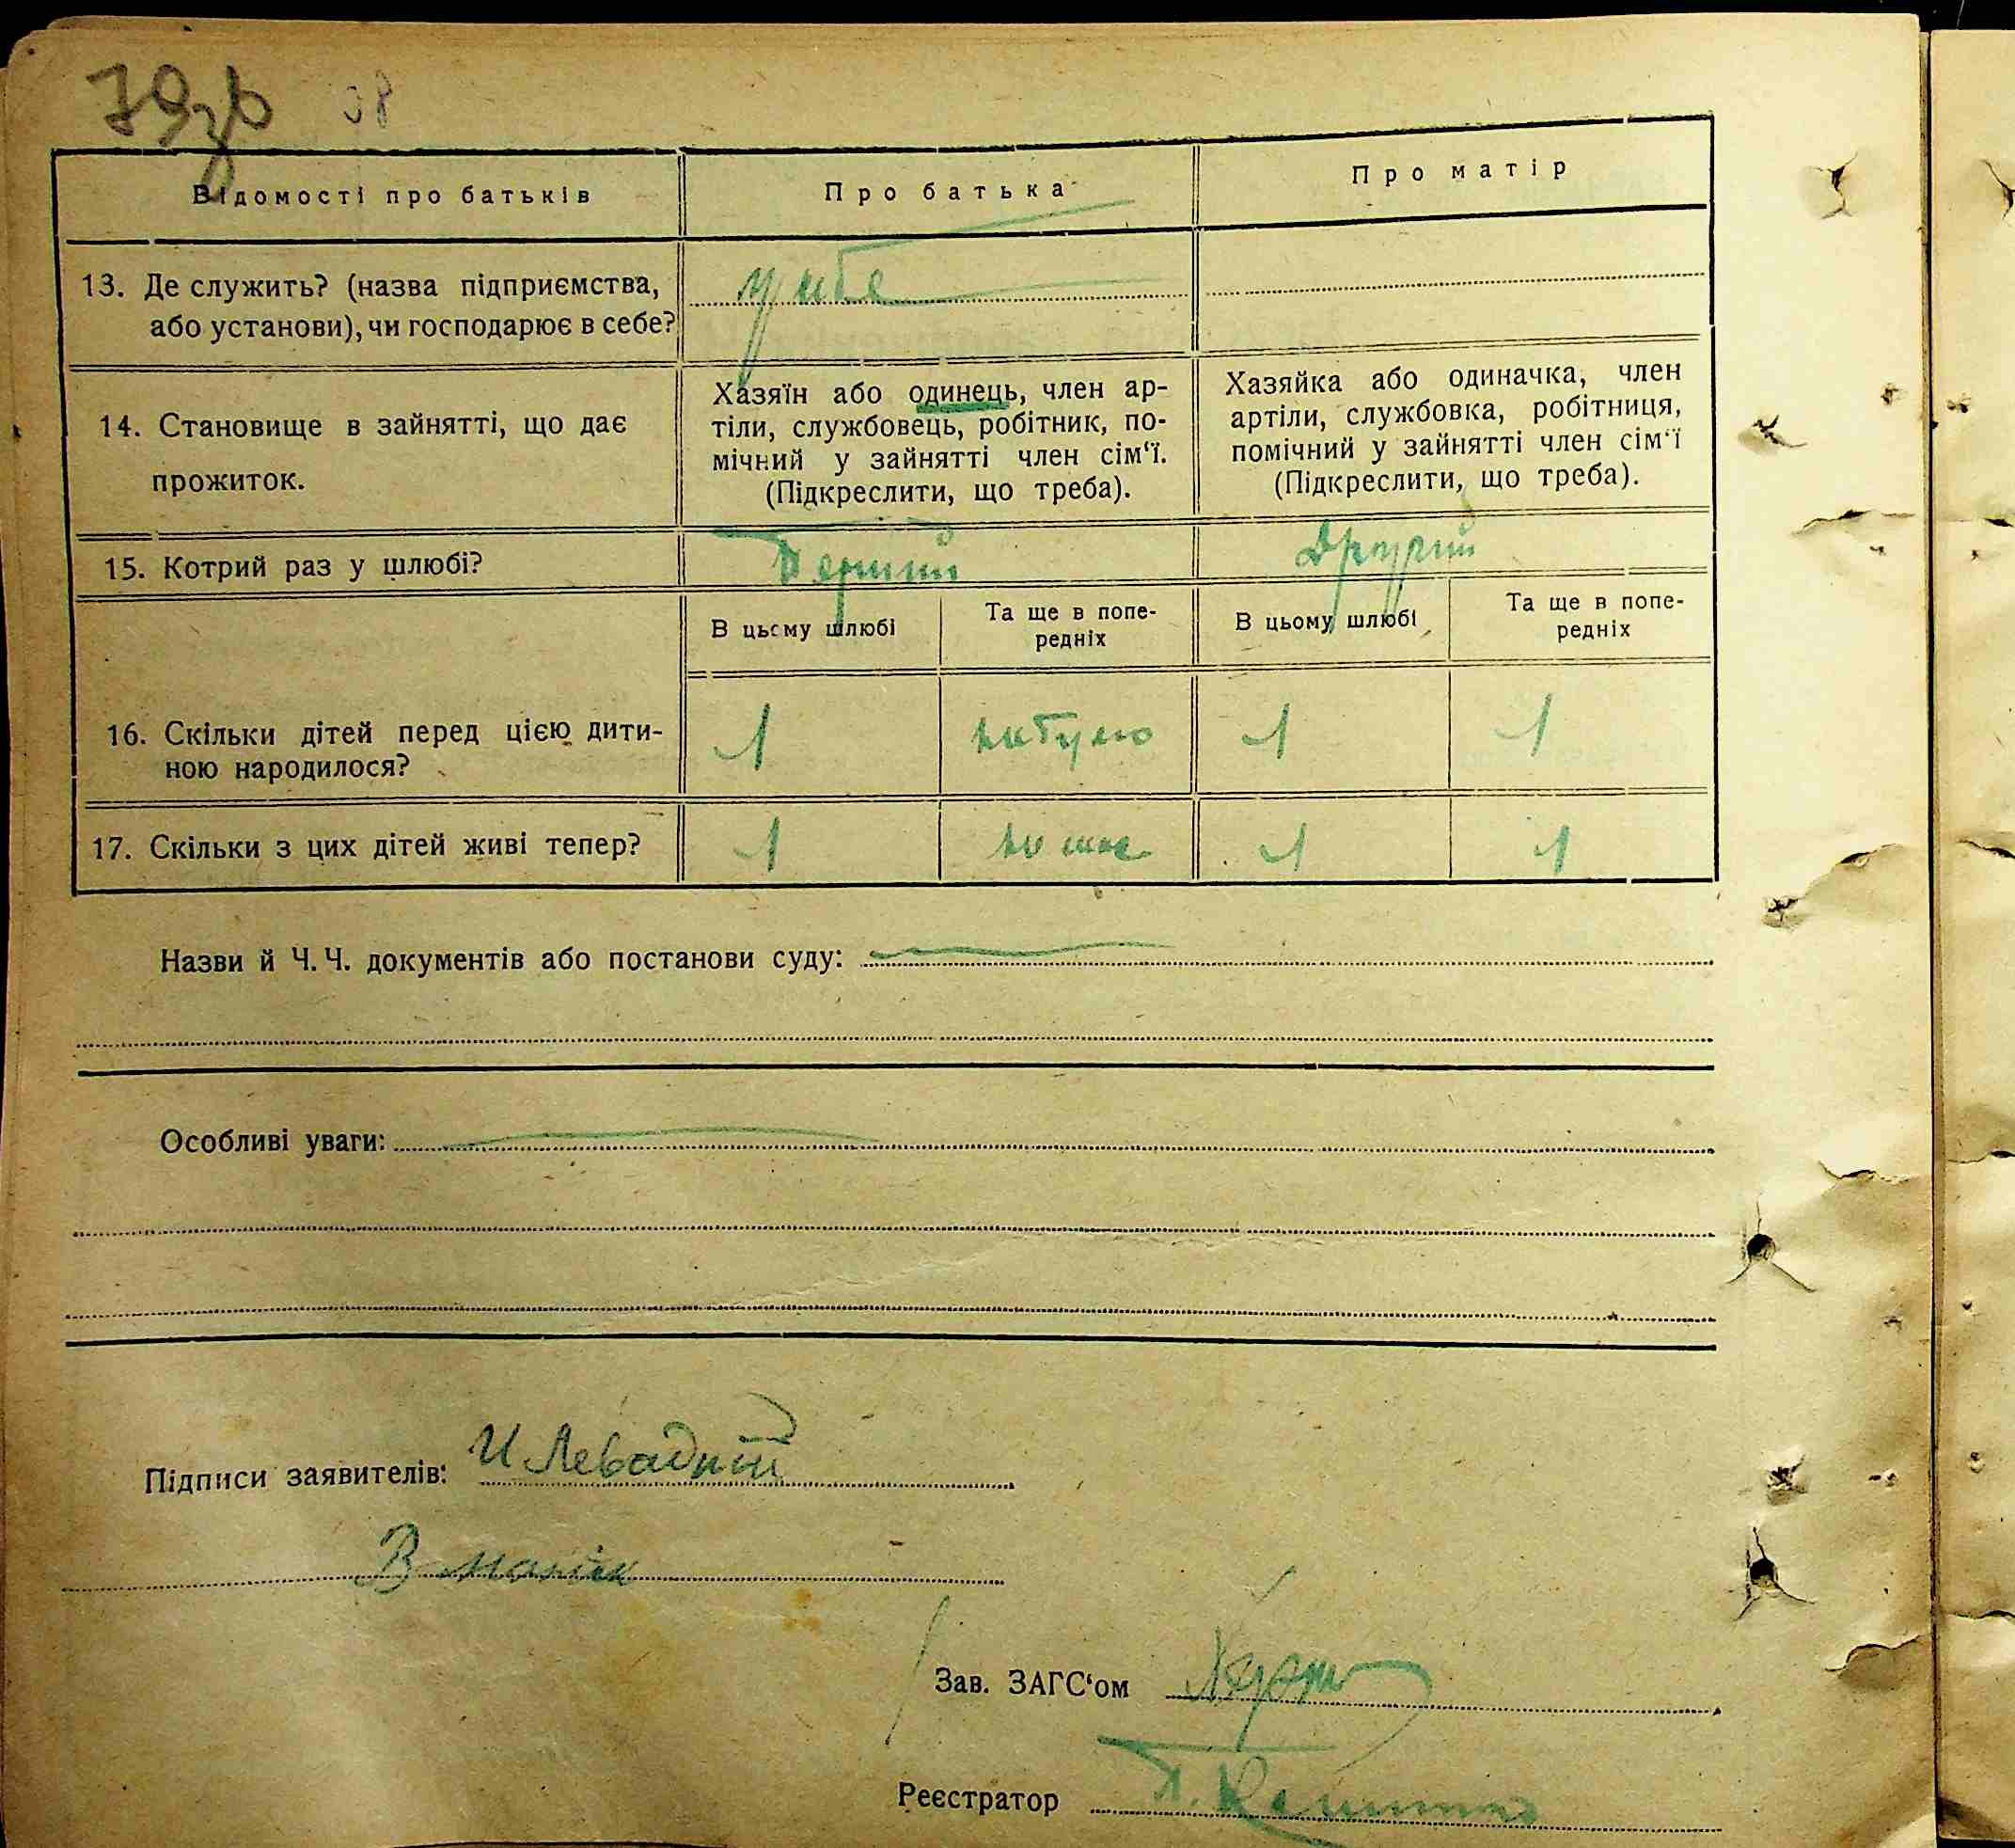 79зв 38
Відомості про батьків
Про батька
Про матір
13. Де служить? (назва підприємства,
або установи), чи господарює в себе?
у себе
14. Становище в зайнятті, що дає
прожиток.
Хазяїн або одинець, член ар-
тіли, службовець, робітник, по-
мічний у зайнятті член сім'ї.
(Підкреслити, що треба).
Хазяйка або одиначка, член
артіли, службовка, робітниця,
помічний у зайнятті член сім'ї
(Підкреслити, що треба).
15. Котрий раз у шлюбі?
Перший
Другий
В цьому шлюбі
Та ще в попе-
редніх
В цьому шлюбі
Та ще в попе-
редніх
16. Скільки дітей перед цією дити-
ною народилося?
1
не було
1
1
17. Скільки з цих дітей живі тепер?
1
немає
1
1
Назви й Ч.Ч. документів або постанови суду:
Особливі уваги:
Підписи заявителів: И Левадній
В
Зав. ЗАГС'ом
Реєстратор